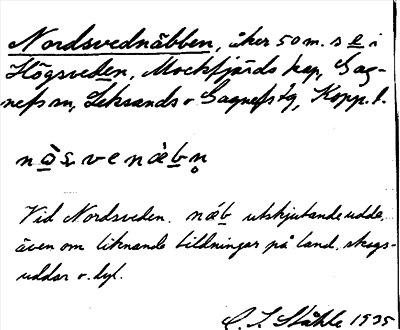 Nordsvednäbben, åker 50 m. s e i
Högsveden, Mockfjärds kap, Gag-
nefs sn, Leksands o Gagnefs tg, Kopp. l.
Vid Nordsveden. näb utskjutande udde,
även om liknande bildningar på land, skogs-
uddar o. dyl.
C. I. Ståhle 1935